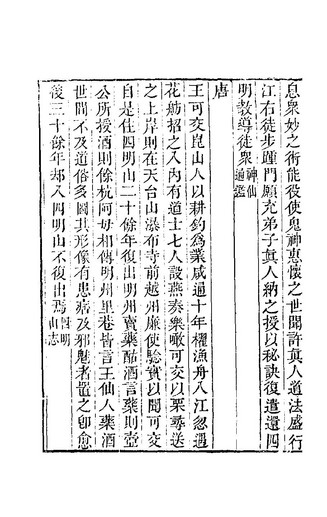 息衆妙之術能役使鬼神惠懷之世聞許真人道法盛行
江右徒步踵門願充弟子真人納之授以秘訣復遣還四
明教導徒衆神仙通鑑
唐
王可交崑山人以耕釣爲業咸通十年櫂漁舟入江忽遇
花舫招之入內有道士七人設燕奏樂啖可交以栗尋送
之上岸則在天台山瀑布寺前越州廉使驗實以聞可交
自是住四明山二十餘年復出明州賣藥酤酒言藥則壺
公所授酒則餘杭阿母相傳明州里巷皆言王仙人藥酒
世間不及道俗多圖其形像有患㾮及邪魅者置之卽愈
後三十餘年却入四明山不復出焉四明山志